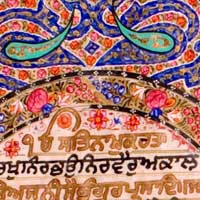 ੴ ਸਤਿਨਾਮੁਕਰਤਾ
ਰਖੁਨਿਰਭਉਨਿਰਵੈਰੁਅਕਾਲ
ਤਿਅਜੂਨੀਸੈਭੰਗੁਰਪ੍ਰਸਾਦਿ